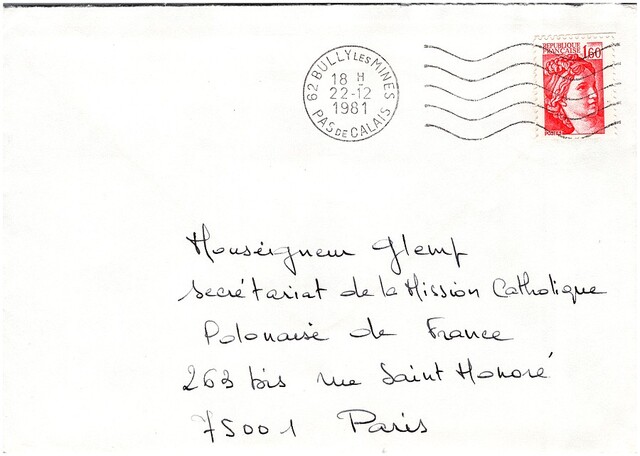 62 BULLY LES MINES
18 H
22-12
1981
PAS DE CALAIS
REPUBLIQUE
FRANÇAISE
1,60
POSTES
Monseigneur Glemp
Secrétariat de la Mission Catholique
Polonaise de France
263 bis rue Saint Honoré
75001 Paris